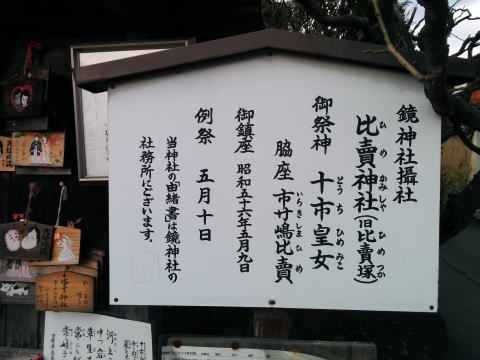 鏡神社攝社
比賣神社(旧比賣塚)
ひめかみしゃひめつか
御祭神 十市皇女
とうちひめみこ
脇座 市杵嶋比賣
いちきしまひめ
御鎮座 昭和五十六年五月九日
例祭 五月十日
当神社の「由緒」書は鏡神社の
社務所にございます。